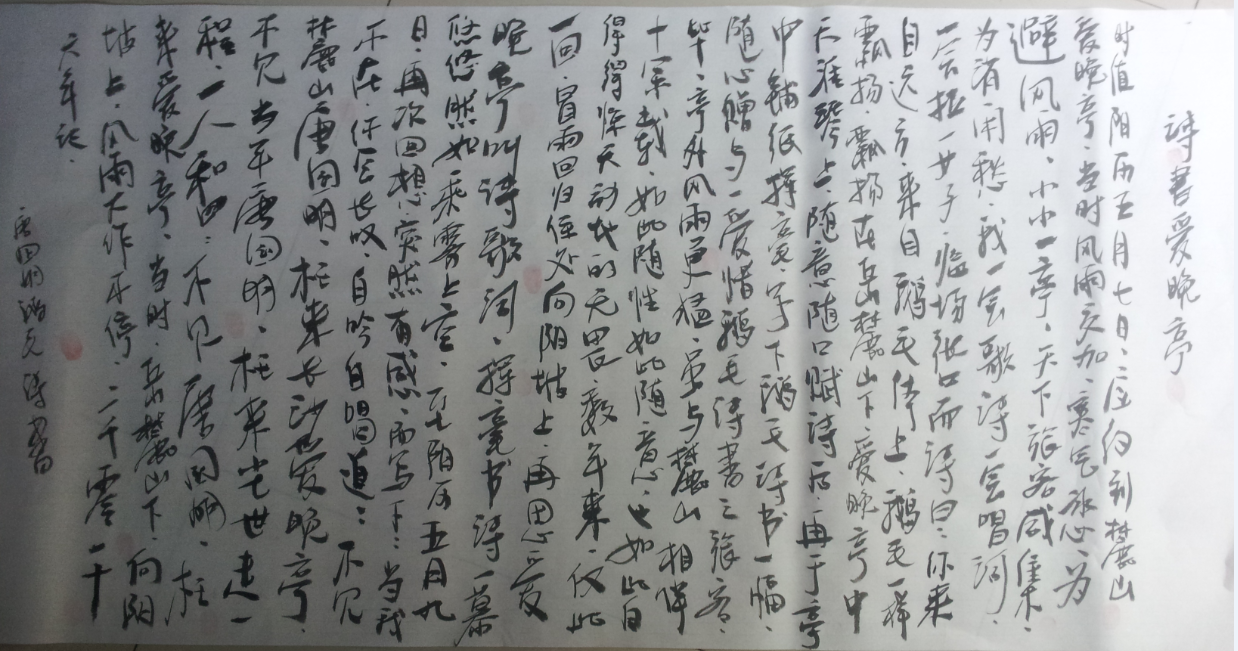 诗書爱晚亭
时值阳历五月七日、应约到麓山
爱晚亭、当时风雨交加、寒气放心、为
避风雨、小小一亭、天下旅客咸集、
为消闲愁、我一会歌诗一会唱词、
一会抚一女子、临场张口而诗曰、你来
自远方、来自鹅毛体上、鹅毛一样
飘扬、飘扬在岳麓山下、爱晚亭中
天涯琴上、随意随口赋诗后、再于亭
中铺纸挥毫、字下鹅毛诗书一幅、
随心赠与、爱惜鹅毛诗書之旅客、
毕、亭外风雨更猛、虽与麓山相伴
十余载、如此随性如此随意、也如此自
得得深天动我的无畏、数年来、仅此
一回、冒雨回归住处向阳坡上、再思爱
晚亭叫诗歌词、挥毫书诗一幕
悠悠然如乘雲上空、至阳历五月九
日、再次回想、突然有感、而写下：当我
不在、任尔长叹、自吟自唱道：不见
麓山唐国明、枉来长沙爱晚亭、
不见当年唐国明、枉来尘世走一
程、一人和曰：不见唐国明、枉
来爱晚亭、当时、岳麓山下、向阳
坡上、风雨大作不停、二千零一十
六年记、
唐国明 诗書